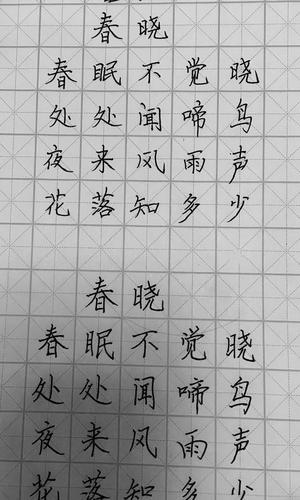 春晓
春眠不觉晓
处处闻啼鸟
夜来风雨声
花落知多少
春晓
春眠不觉晓
处处闻啼鸟
夜来风雨声
花落知多少